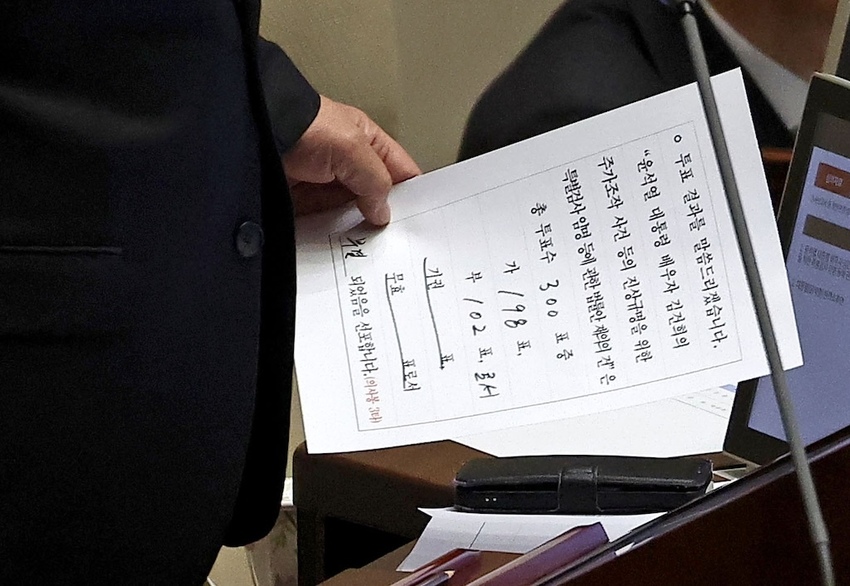 ○ 투표 결과를 말씀드리겠습니다.
"윤석열 대통령 배우자 김건희의
주가조작 사건 등의 진상규명을 위한
특별검사 임명 등에 관한 법률안 재의의 건"은
총 투표수 300 표 중
가 198 표,
부 102 표, 로서
기권 표,
무효 표로서
부결 되었음을 선포합니다. (의사봉 3타)